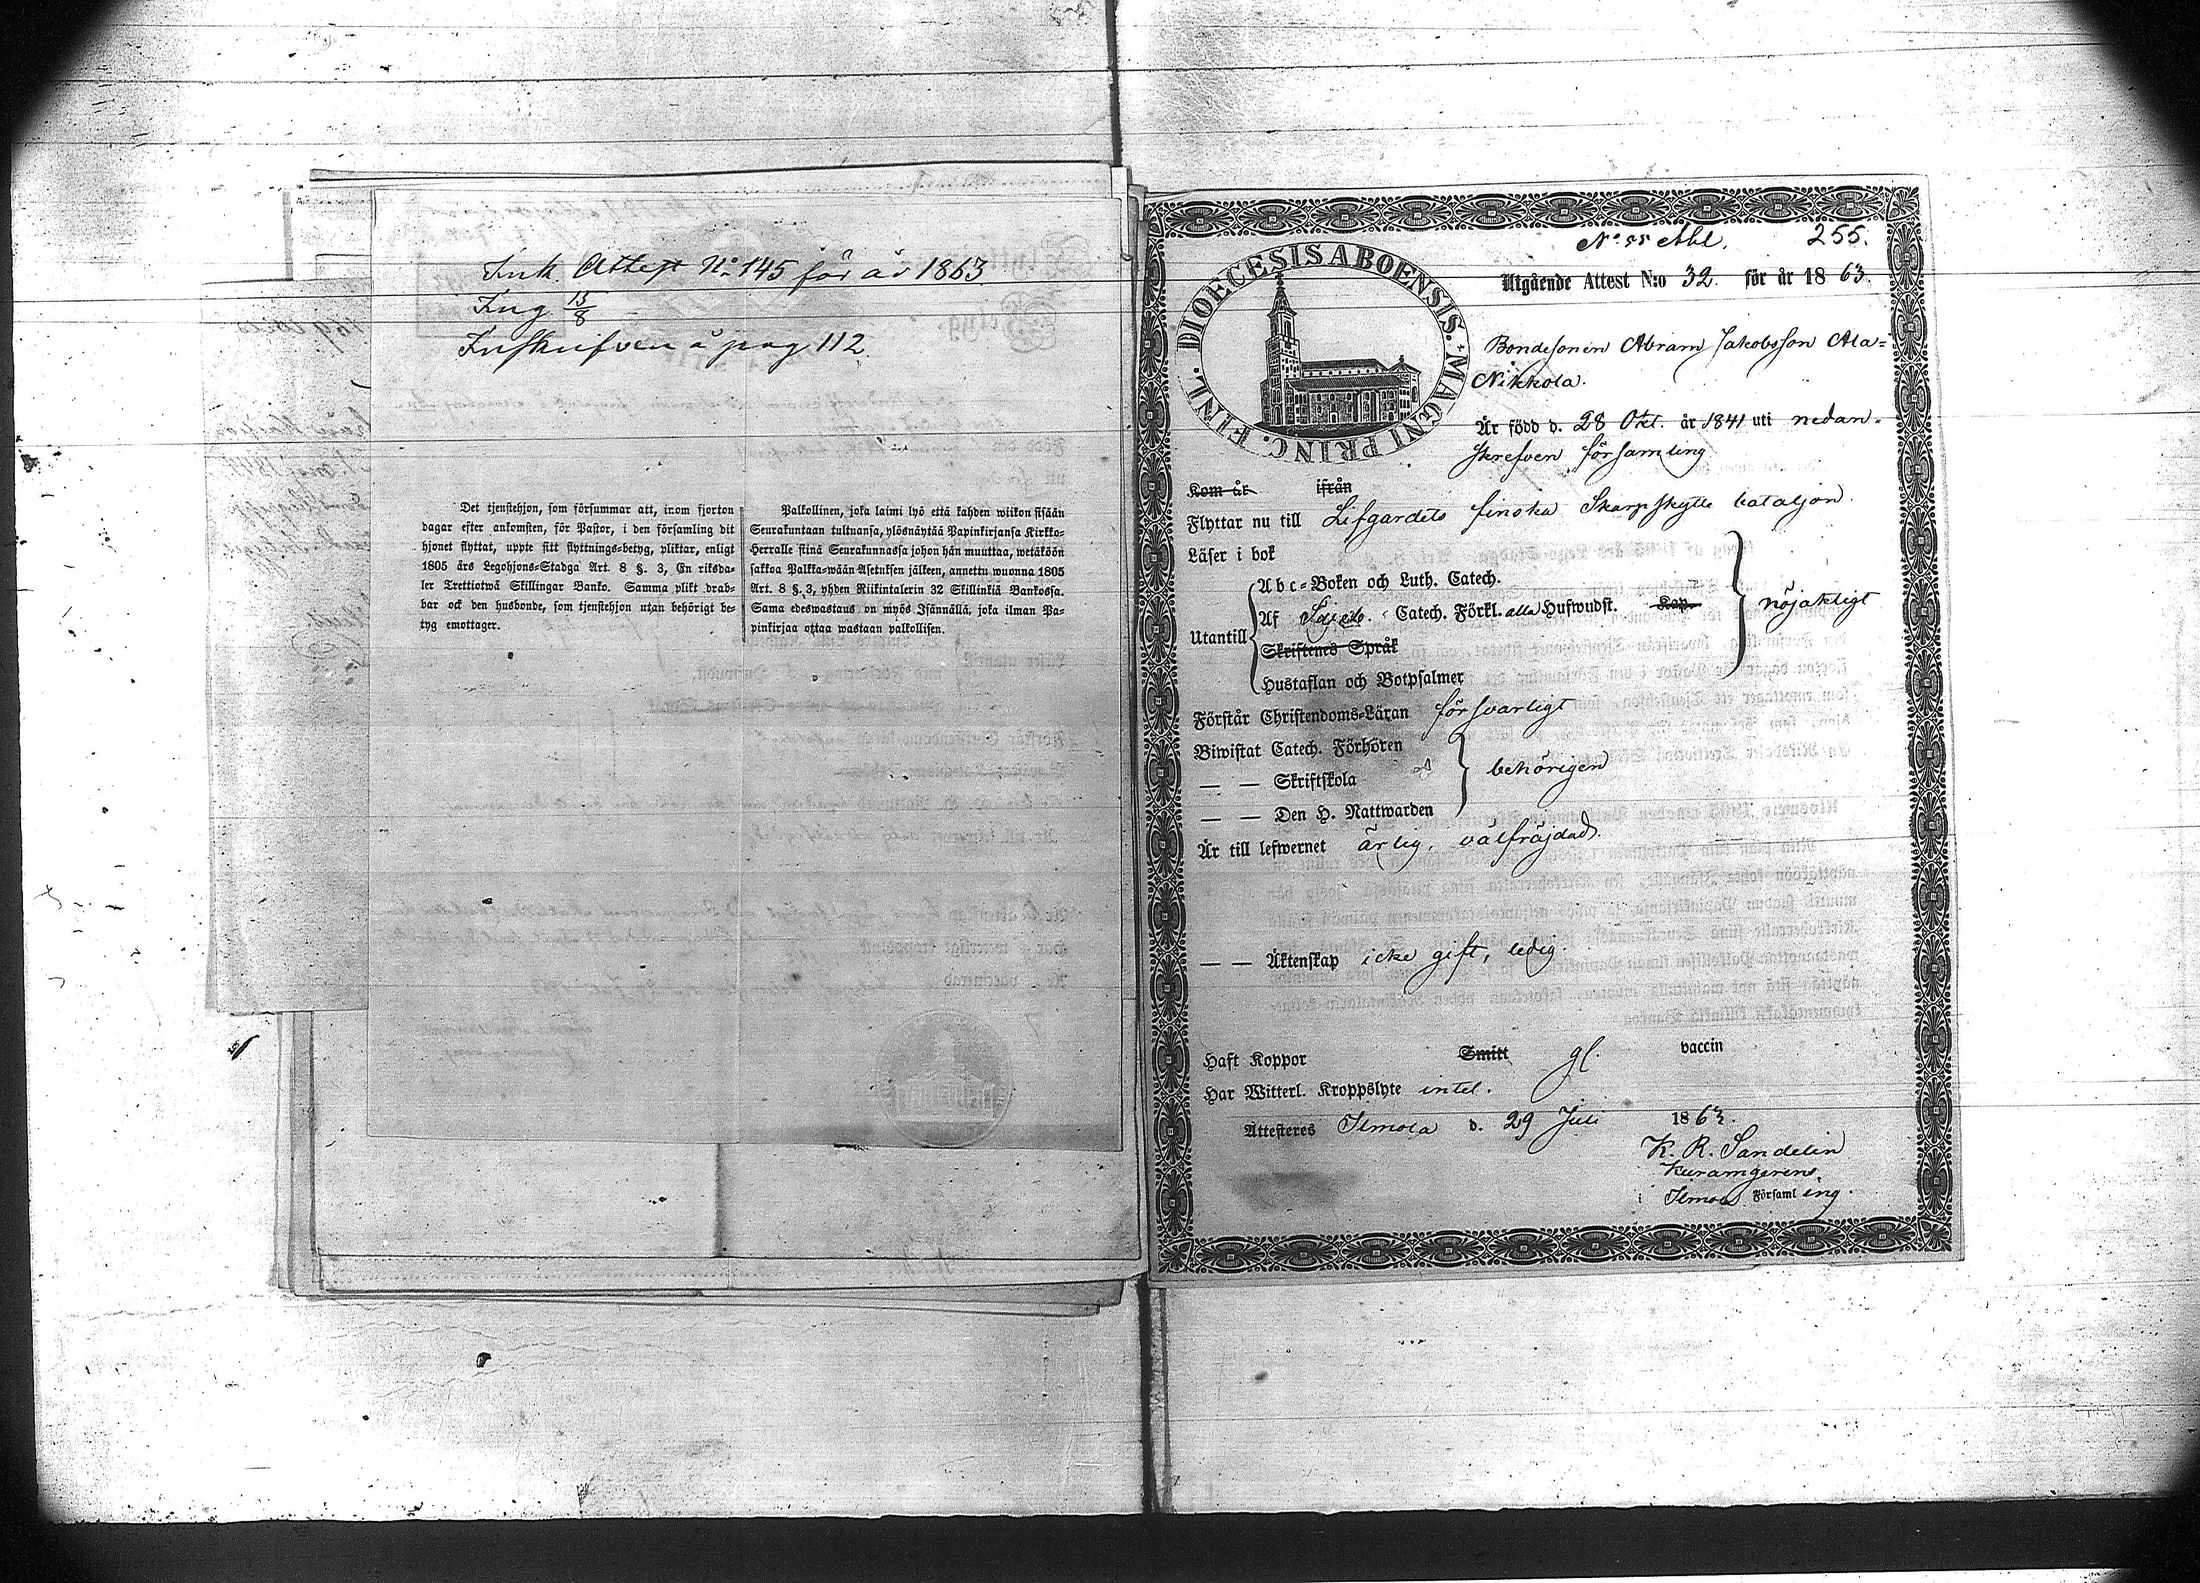 Ink Attest No 145 för år 1863
Ing 15/8
Inskrifven å pag 112
Det tjenstehjon, som försummar att, inom fjorton
dagar efter ankomsten, för Pastor, i den församling dit
hjonet flyttat, uppte sitt flyttnings-betyg, pliktar, enligt
1805 års Legohjons-Stadga Art. 8 §. 3, En riksda-
ler Trettiotwå Skillingar Banko. Samma plikt drab-
bar ock den husbonde, som tjenstehjon utan behörigt be-
tyg emottager.
Palkollinen, joka laimi lyö että kahden wiikon sisään
Seurakuntaan tultuansa, ylösnäytää Papinkirjansa Kirkko-
Herralle siinä Seurakunnassa johon hän muuttaa, wetäköön
sakkoa Palkka-wään Asetuksen jälkeen, annettu wuonna 1805
Art. 8 §. 3, yhden Riikintalerin 32 Skillinkiä Bankossa.
Sama edeswastaus on myös Isännällä, joka ilman Pa-
pinkirjaa ottaa wastaan palkollisen.
255.
DIOECESIS ABOENSIS. MAGNI PRINC. FINL.
Utgående Attest N:o 32. för år 1863.
Bondesonen Abram Jakobsson Ala=
Nikkola.
Är född d. 28 Okt. år 1841 uti nedan-
skrefven församling
Kom år ifrån
Flyttar nu till Lifgardets finska Skarpskytte bataljon.
Läser i bok
Abc-Boken och Luth. Catech.
Utantill Af Catech. Förkl. alla Hufwudst. Kap. nöjaktigt
Skriftenes Språk
Hustaflan och Botpsalmer
Förstår Christendoms-Läran försvarligt
Biwistat Catech. Förhören
— — Skriftskola behörigen
— — Den H. Nattwarden
Är till lefwernet ärlig, välfräjdad.
— — Äktenskap icke gift, ledig.
Haft Koppor Smitt gl. vaccin
Har Witterl. Kroppslyte intet.
Attesteras Ilmola d. 29 Juli 1863.
K. R. Sandelin
Kuramgerens
i Ilmola Församling.